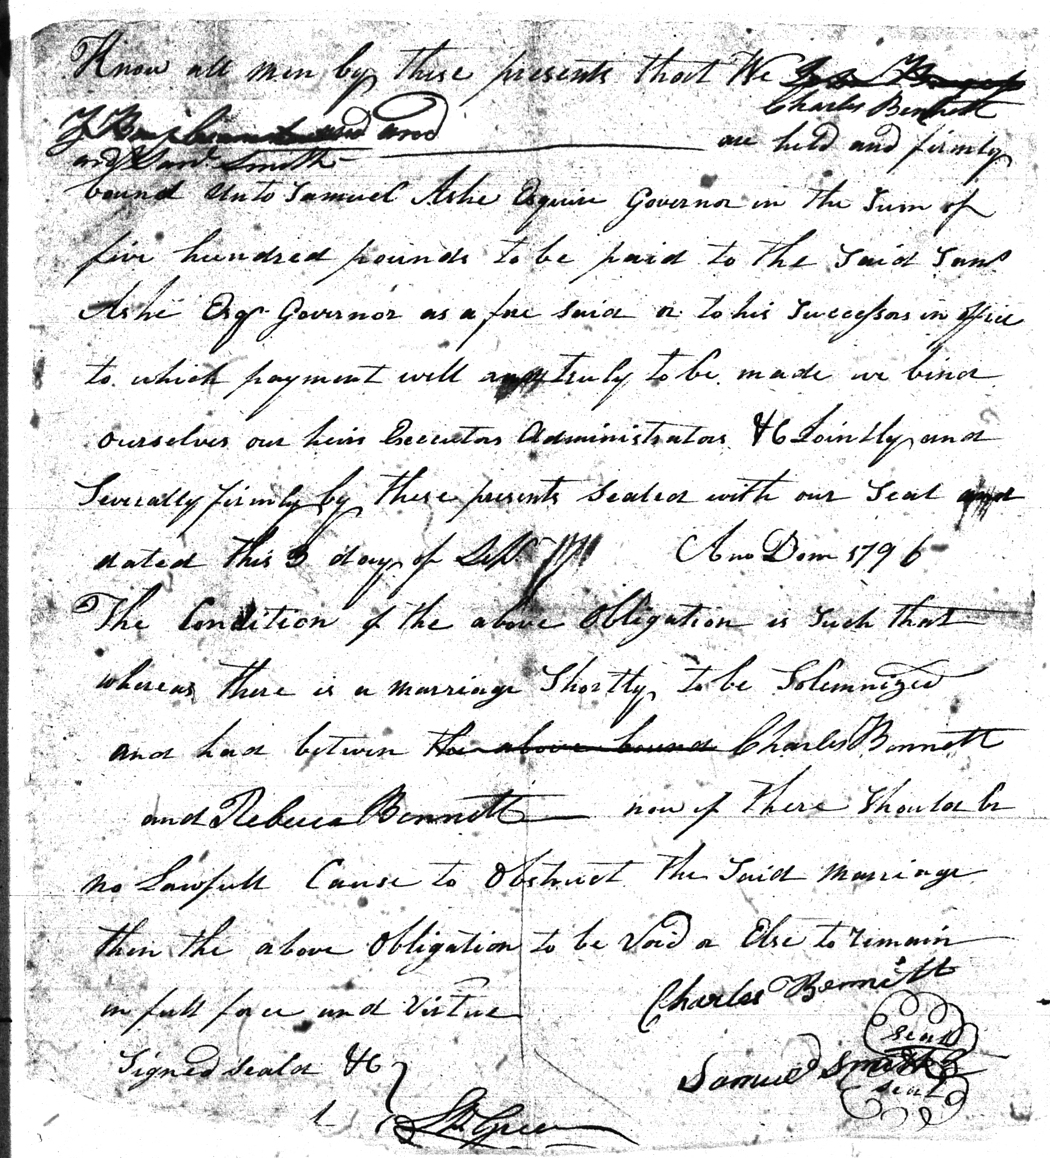 Know all men by these presents that We
Charles Bennett
and
and Saml Smith
are held and firmly
bound unto Samuel Ashe Esquire Governor in the Sum of
five hundred pounds to be paid to the Said Saml
Ashe Esqr Governor as a fore said or to his Successors in office
to which payment well and truly to be made we bind
ourselves our heirs Executors Administrators &C Jointly and
Severally firmly by these presents Sealed with our Seal and
dated this 3 day of Sept Ano Dom 1796
The Condition of the above Obligation is Such that
whereas there is a marriage Shortly to be Solemnized
and had between the above bound Charles Bennett
and Rebecca Bennett now if there Should be
no Lawfull Cause to Obstruct the Said marriage
then the above Obligation to be Void or Else to remain
in full force and Virtue
Charles Bennett
seal
Signed Seald &C
Samuel Smith
seal
Green